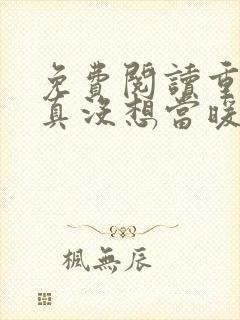 免費閱讀重
真沒想當暖
楓無辰